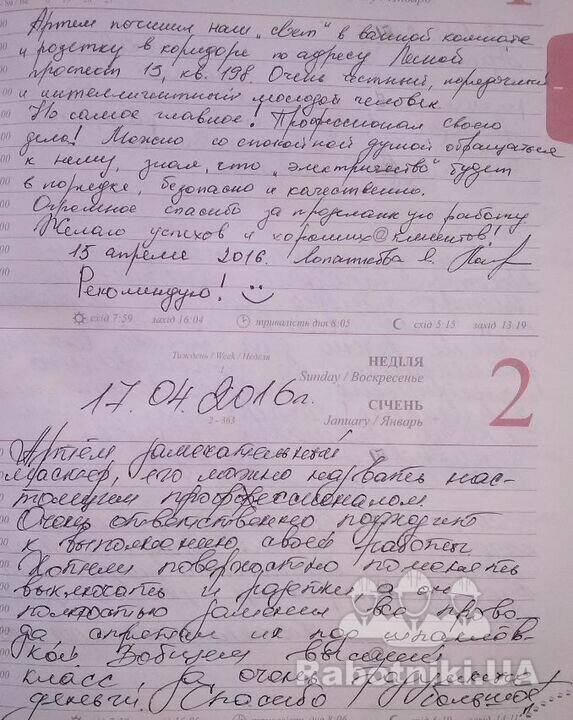 Артем починил наш „свет" в ванной комнате
и розетку в коридоре по адресу Лесной
проспект 15, кв. 198. Очень честный, порядочный
и интеллигентный молодой человек
Но самое главное! Профессионал своего
дела! Можно со спокойной душой обращаться
к нему, зная, что „электричество" будет
в порядке, безопасно и качественно.
Огромное спасибо за проделанную работу
Желаю успехов и хороших клиентов!
15 апреля 2016.
Рекомендую!
схід 7:59 захід 16:04 тривалість дня 8:05 схід 5:15 захід 13:19
Тиждень / Week / Неделя
1
НЕДІЛЯ
Sunday / Воскресенье
2
17.04.2016г.
СІЧЕНЬ
2 - 363
January / Январь
Артём замечательный
мастер, его можно назвать нас-
тоящим профессионалом.
Очень ответственно подходит
к выполнению своей работы
Хотели поверхностно поменять
выключатель и розетки, а он
полностью заменил все прово-
да, спрятал их под шпаклёв-
кой. В общем высший
класс, за очень
деньги. Спасибо большое!
Rabotniki.UA